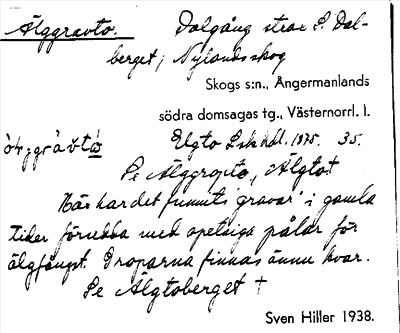 Älggravto. Dalgång strax S. Dal-
berget; Nylandsskog
Skogs s:n., Ångermanlands
södra domsagas tg., Västernorrl. l.
Elgto Lskhdl. 1875. 35.
Se Älggropto, Älgtot
Här har det funnits 'gravar' i gamla
tider försedda med spetsiga pålar för
älgfångst. Groparna finnas ännu kvar.
Se Älgtoberget †
Sven Hiller 1938.